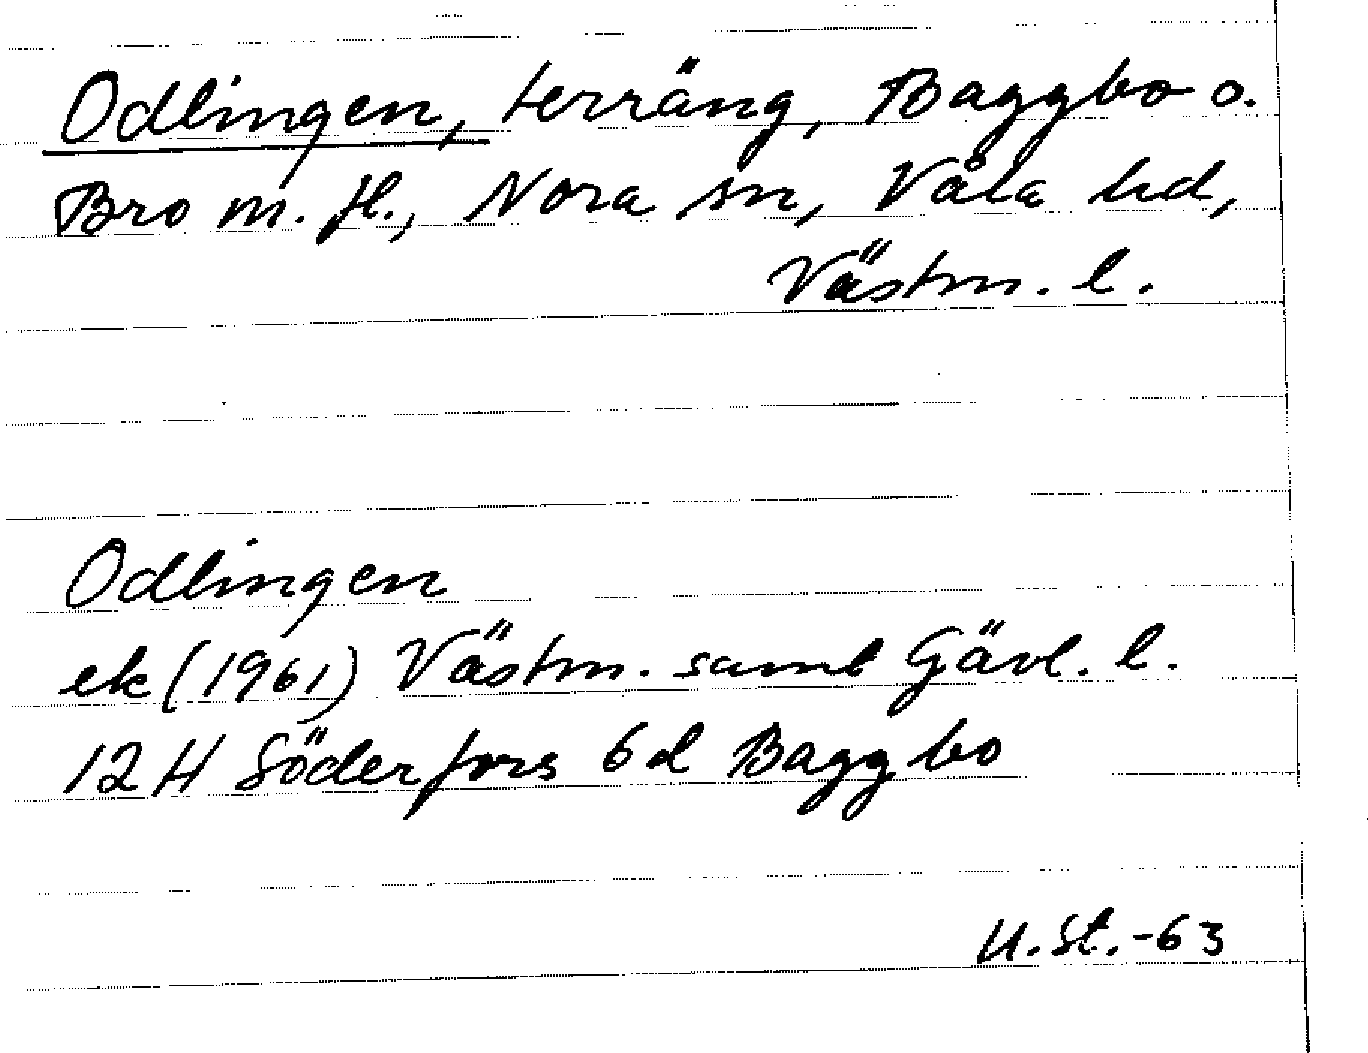 Odlingen, terräng, Baggbo o.
Bro m. fl., Nora sn, Våla hd,
Västm. l.
Odlingen
ek (1961) Västm. samt Gävl. l.
12 H Söderfors 6d Baggbo
U. St. -63